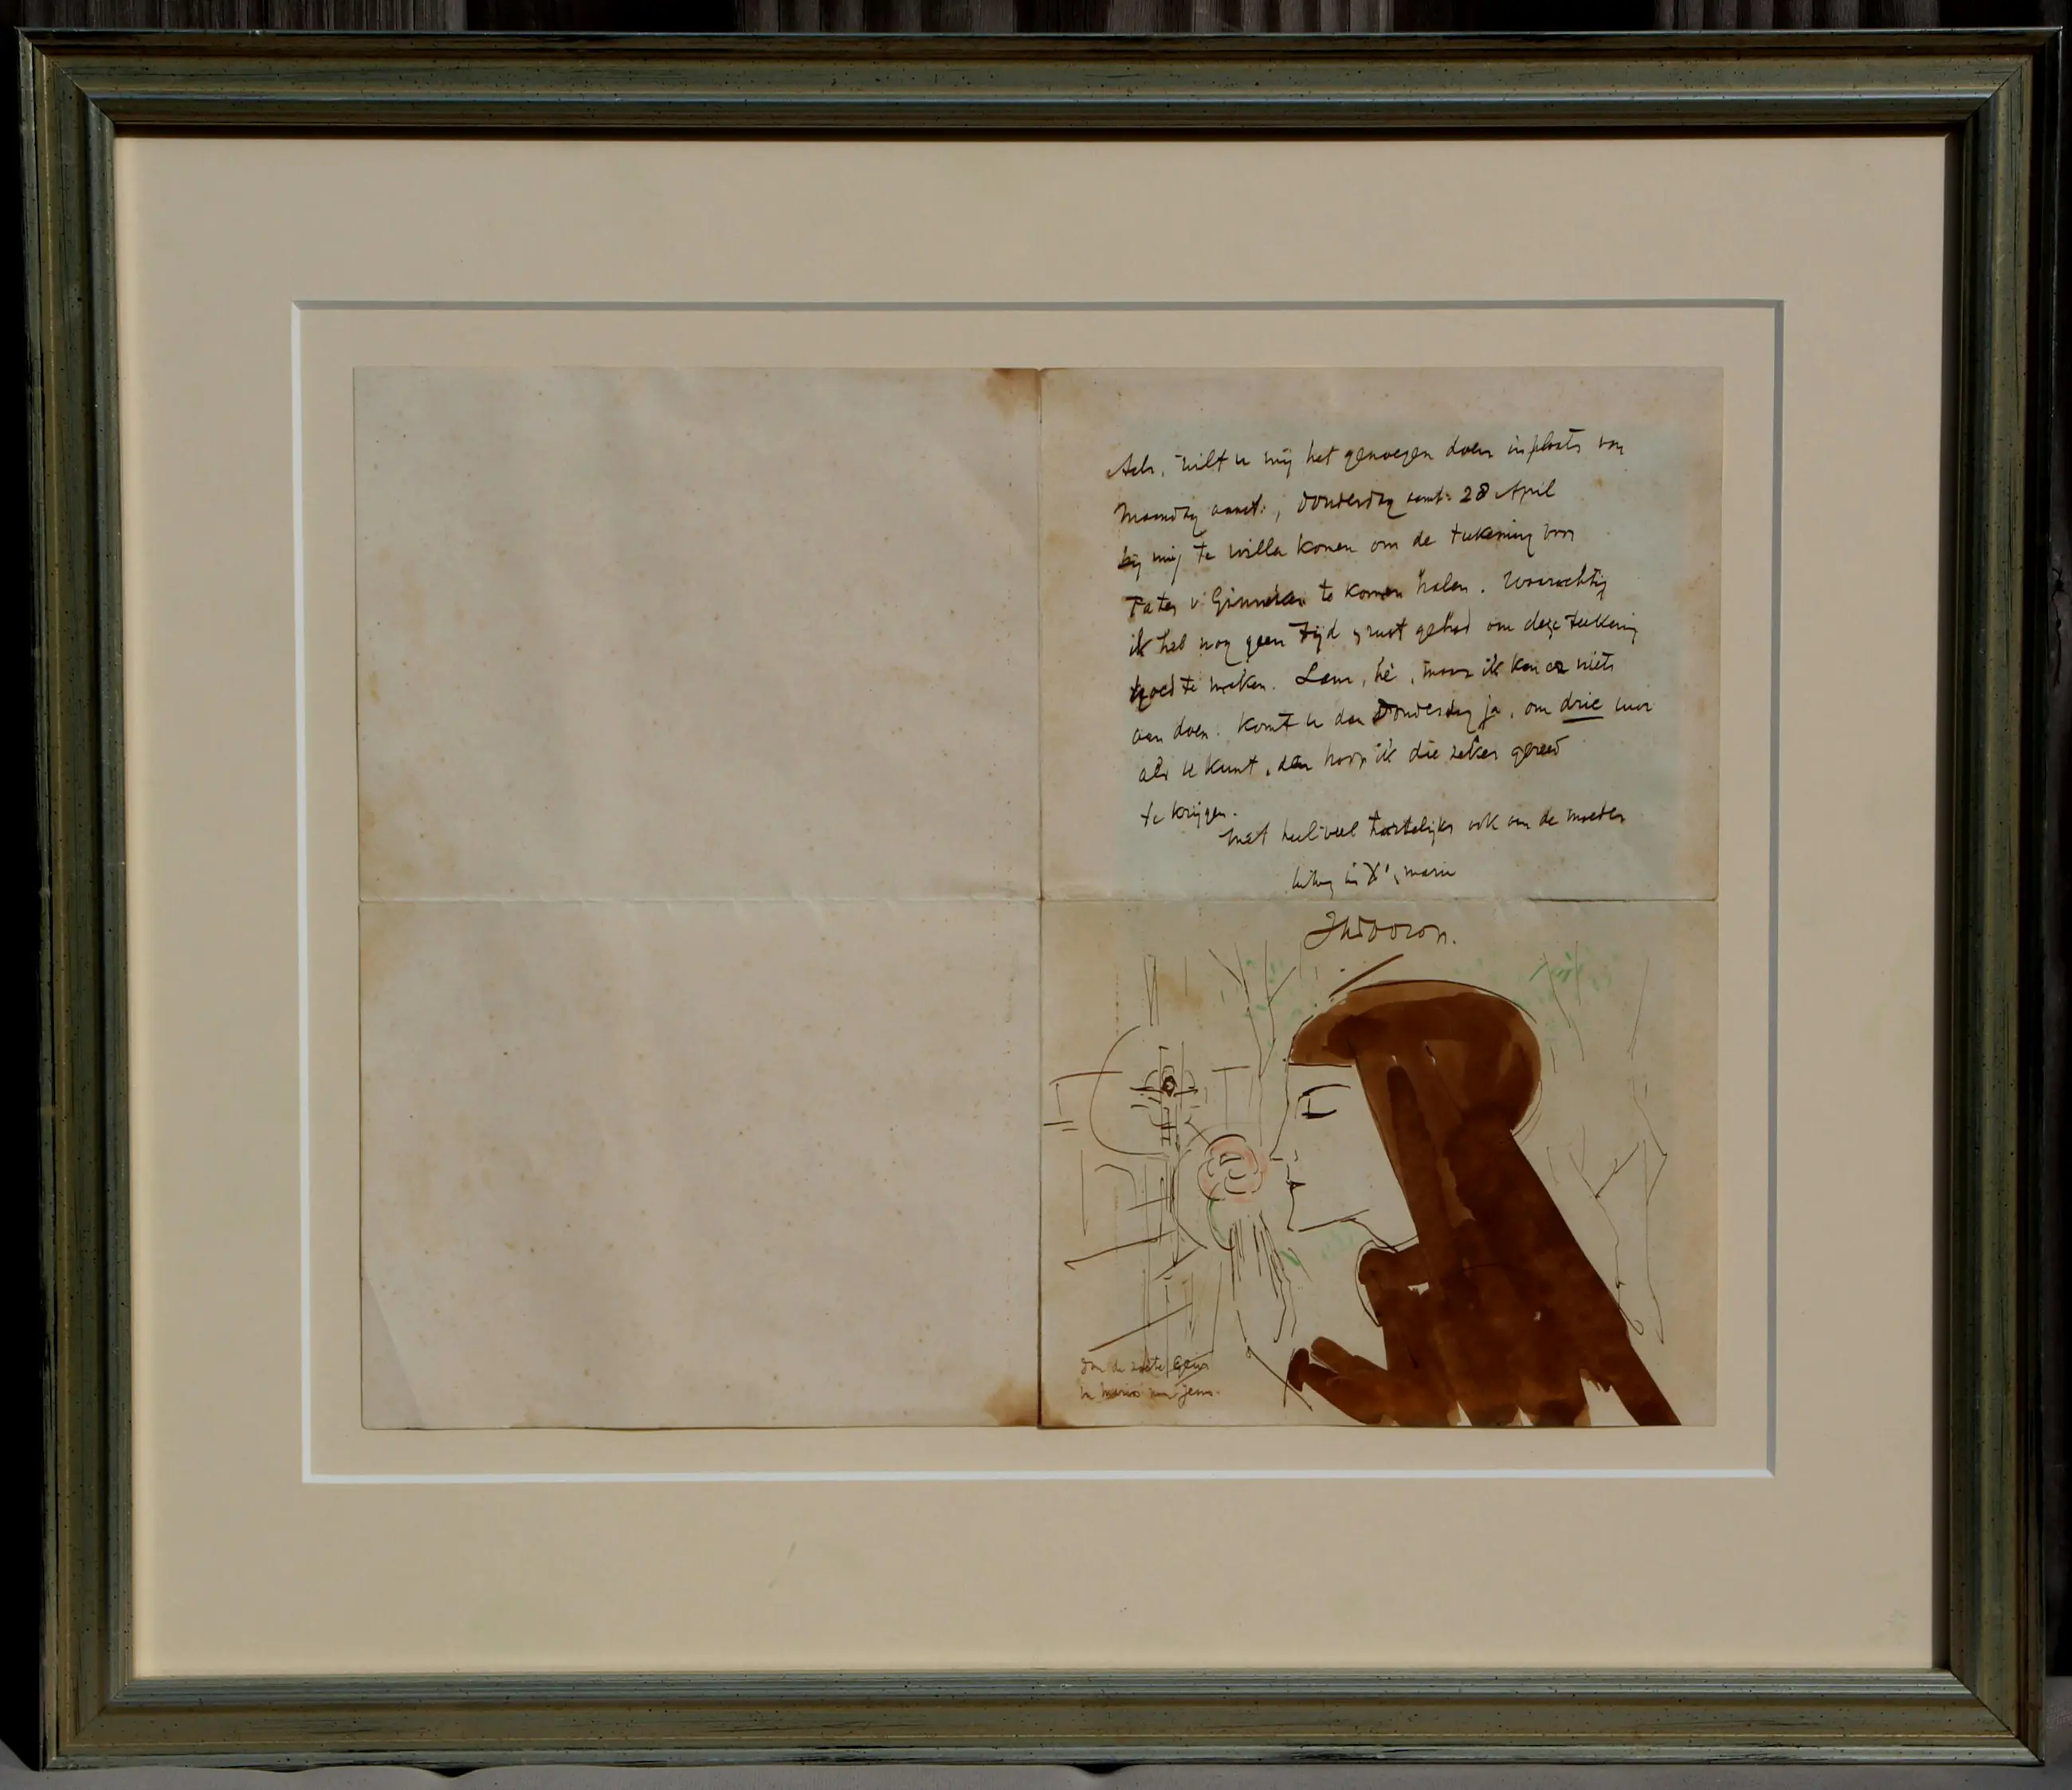 Ach, wilt u mij het genoegen doen in plaats van
Maandag aanst:, Donderdag aanst: 28 April
bij mij te willen komen om de teekening voor
Pater v Ginneken te komen halen. Waarachtig
ik heb nog geen tijd & rust gehad om deze teekening
goed te maken. Lam, hè, maar ik kan er niets
aan doen. Komt u dan Donderdag ja, om drie uur
als u kunt, dan hoop ik die zeker gereed
te krijgen.
Met heel veel hartelijks ook van de moeder
in X', marie
JhToorop.
van de zoete geur
v. Maria van Jezus.